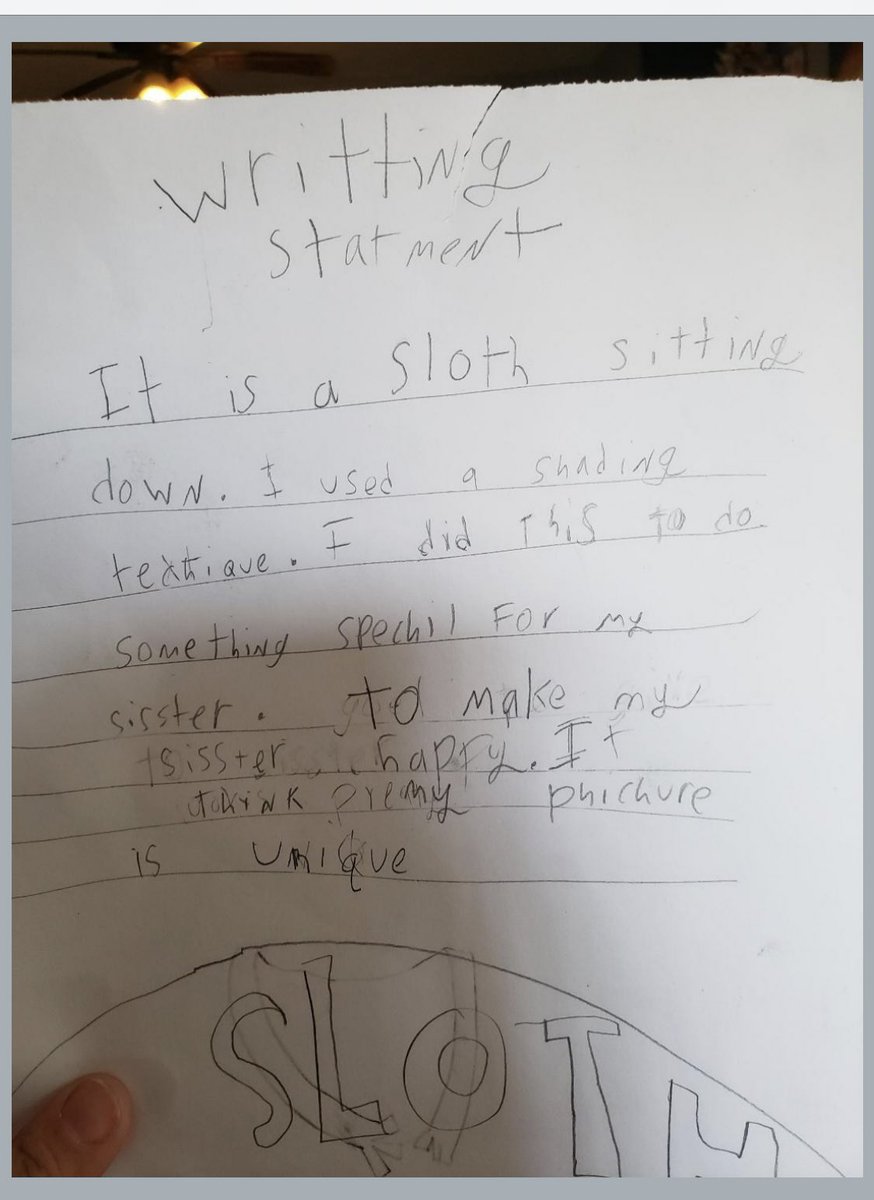 writting
statment
It is a Sloth sitting
down. I used a shading
textique. I did this to do
something spechil For my
sisster. to make my
sisster happy. It
my phichure
is unique
SLOTH